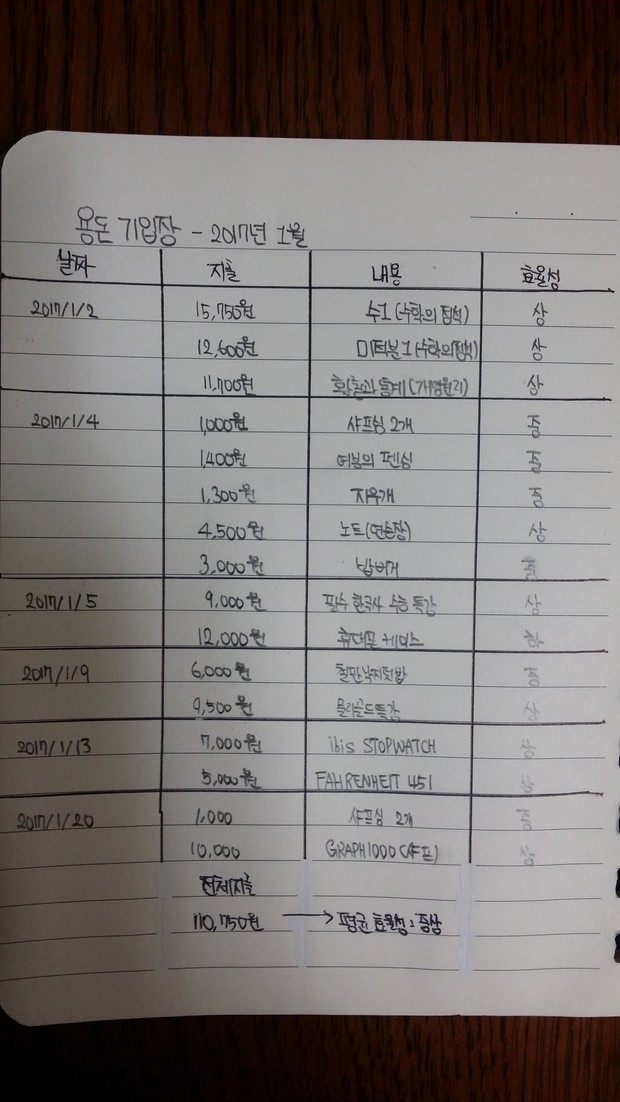 용돈 기입장 - 2017년 1월
날짜 지출 내용 효율성
2017/1/2 15,750원 수1 (수학의 정석) 상
12,600원 미적분1 (수학의정석) 상
11,700원 확률과 통계 (개념원리) 상
2017/1/4 1,000원 샤프심 2개 중
1,400원 여분의 펜심 중
1,300원 지우개 중
4,500원 노트(연습장) 상
3,000원 중
2017/1/5 9,000원 필수 한국사 수능 특강 상
12,000원 휴대폰 케이스 하
2017/1/9 6,000원 철판낙지덮밥 중
9,500원 상
2017/1/13 7,000원 ibis STOPWATCH 상
5,000원 FAHRENHEIT 451 상
2017/1/20 1,000 샤프심 2개 중
10,000 GRAPH1000 (샤프) 상
전체지출
110,750원 → 평균 효율성 : 중상